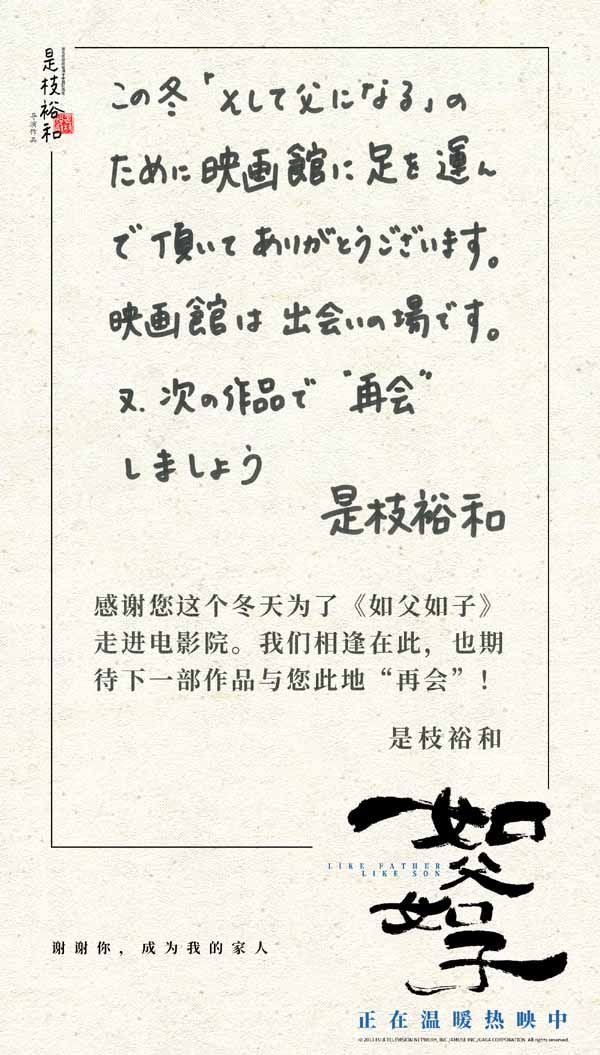 是枝裕和
导演作品
この冬「そして父になる」の
ために映画館に足を運ん
で頂いてありがとうございます。
映画館は出会いの場です。
又.次の作品で“再会”
しましょう
是枝裕和
感谢您这个冬天为了《如父如子》
走进电影院。我们相逢在此，也期
待下一部作品与您此地“再会”！
是枝裕和
如父如子
LIKE FATHER
LIKE SON
谢谢你，成为我的家人
正在温暖热映中
© 2013 FUJI TELEVISION NETWORK, INC./AMUSE INC./GAGA CORPORATION. All rights reserved.